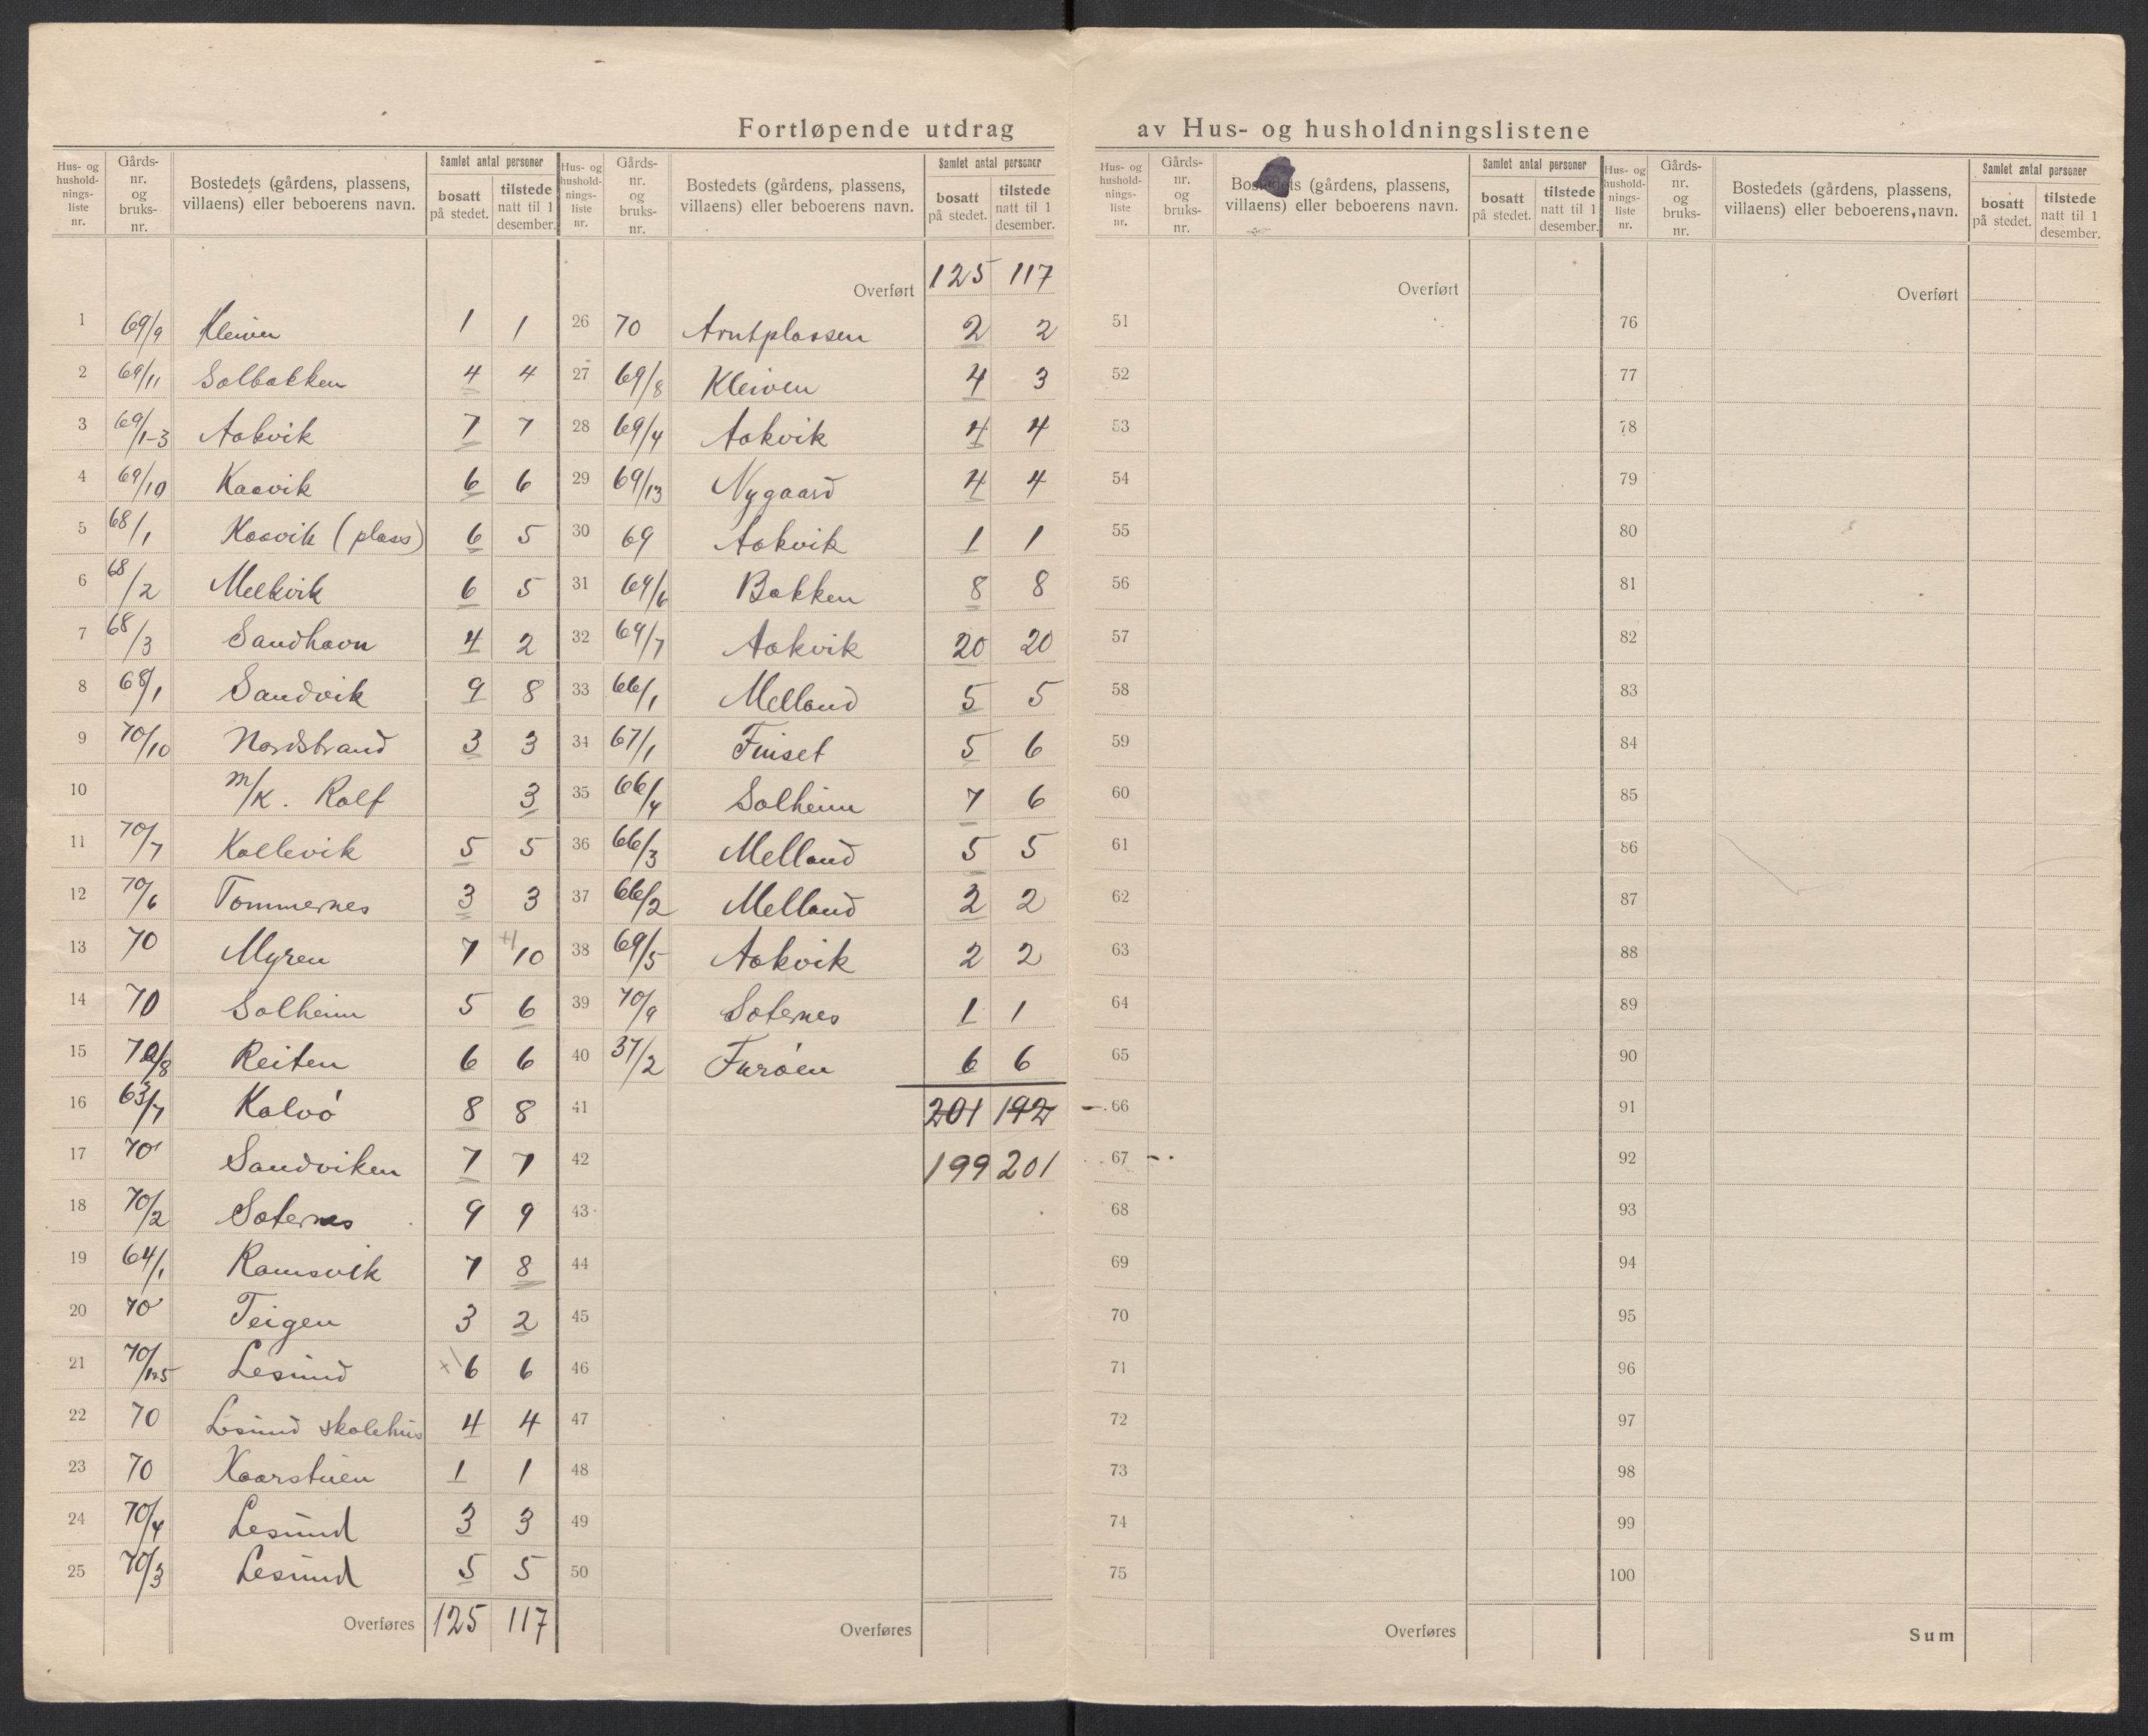 Fortløpende utdrag av Hus- og husholdningslistene
Hus- og hushold- nings- liste nr. | Gårds- nr. og bruks- nr. | Bostedets (gårdens, plassens, villaens) eller beboerens navn. | Samlet antal personer | bosatt på stedet. | tilstede natt til 1 desember.
1 69/9 Kleiven 1 1
2 69/11 Solbakken 4 4
3 69/1-3 Aakvik 7 7
4 69/10 Kaavik 6 6
5 68/1 Kaavik (plass) 6 5
6 68/2 Melkvik 6 5
7 68/3 Sandhavn 4 2
8 68/1 Sandvik 9 8
9 70/10 Nordstrand 3 3
10 m/k. Rolf 3
11 70/7 Kallevik 5 5
12 70/6 Tommernes 3 3
13 70 Myren 7 +1 10
14 70 Solheim 5 6
15 70/8 Reiten 6 6
16 63/7 Kalvö 8 8
17 70 Sandviken 7 7
18 70/2 Soternes 9 9
19 64/1 Ramsvik 7 8
20 70 Teigen 3 2
21 70/1,5 Lesund +1 6 6
22 70 Lesund skolehus 4 4
23 70 Kaarstuen 1 1
24 70/4 Lesund 3 3
25 70/3 Lesund 5 5
Overføres 125 117
Hus- og hushold- nings- liste nr. | Gårds- nr. og bruks- nr. | Bostedets (gårdens, plassens, villaens) eller beboerens navn. | Samlet antal personer | bosatt på stedet. | tilstede natt til 1 desember.
Overført 125 117
26 70 Arntplassen 2 2
27 69/8 Kleiven 4 3
28 69/4 Aakvik 4 4
29 69/13 Nygaard 4 4
30 69 Aakvik 1 1
31 69/6 Bakken 8 8
32 69/7 Aakvik 20 20
33 66/1 Melland 5 5
34 67/1 Finset 5 6
35 66/4 Solheim 7 6
36 66/3 Melland 5 5
37 66/2 Melland 2 2
38 69/5 Aakvik 2 2
39 70/9 Soternes 1 1
40 37/2 Furöen 6 6
41 201 192
42 199 201
43
44
45
46
47
48
49
50
Overføres
Hus- og hushold- nings- liste nr. | Gårds- nr. og bruks- nr. | Bostedets (gårdens, plassens, villaens) eller beboerens navn. | Samlet antal personer | bosatt på stedet. | tilstede natt til 1 desember.
Overført
51
52
53
54
55
56
57
58
59
60
61
62
63
64
65
66
67
68
69
70
71
72
73
74
75
Overføres
Hus- og hushold- nings- liste nr. | Gårds- nr. og bruks- nr. | Bostedets (gårdens, plassens, villaens) eller beboerens, navn. | Samlet antal personer | bosatt på stedet. | tilstede natt til 1 desember.
Overført
76
77
78
79
80
81
82
83
84
85
86
87
88
89
90
91
92
93
94
95
96
97
98
99
100
Sum